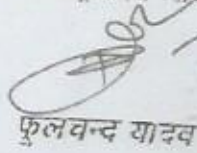 फुलचन्द यादव